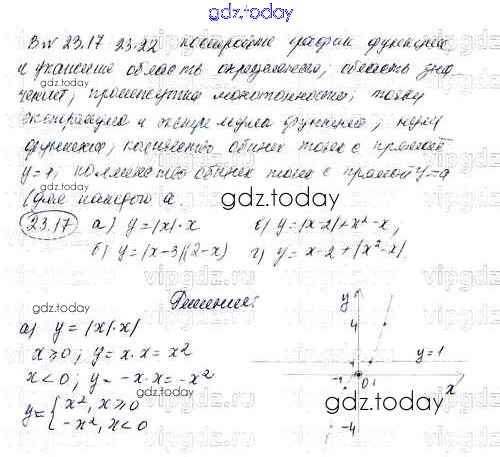 gdz.today
В № 23.17 23.22 постройте график функции
и укажите область определения, область зна
чений, промежутки монотонности, точку
экстремума и экстремумы функции, нули
gdz.today
функции, количество общих точек с прямой
y=1, количество общих точек с прямой y=a
(для каждого a.
gdz.today
23.17 а) y=|x|·x в) y=|x-2|+x²-x,
б) y=|x-3|(2-x) г) y=x-2+|x²-x|.
gdz.today
Решение:
а) y=|x|·x|
x≥0; y=x·x=x²
x<0; y=-x·x=-x²
y={x², x≥0
-x², x<0
y
4
y=1
-1 0 1 x
-4
gdz.today
gdz.today